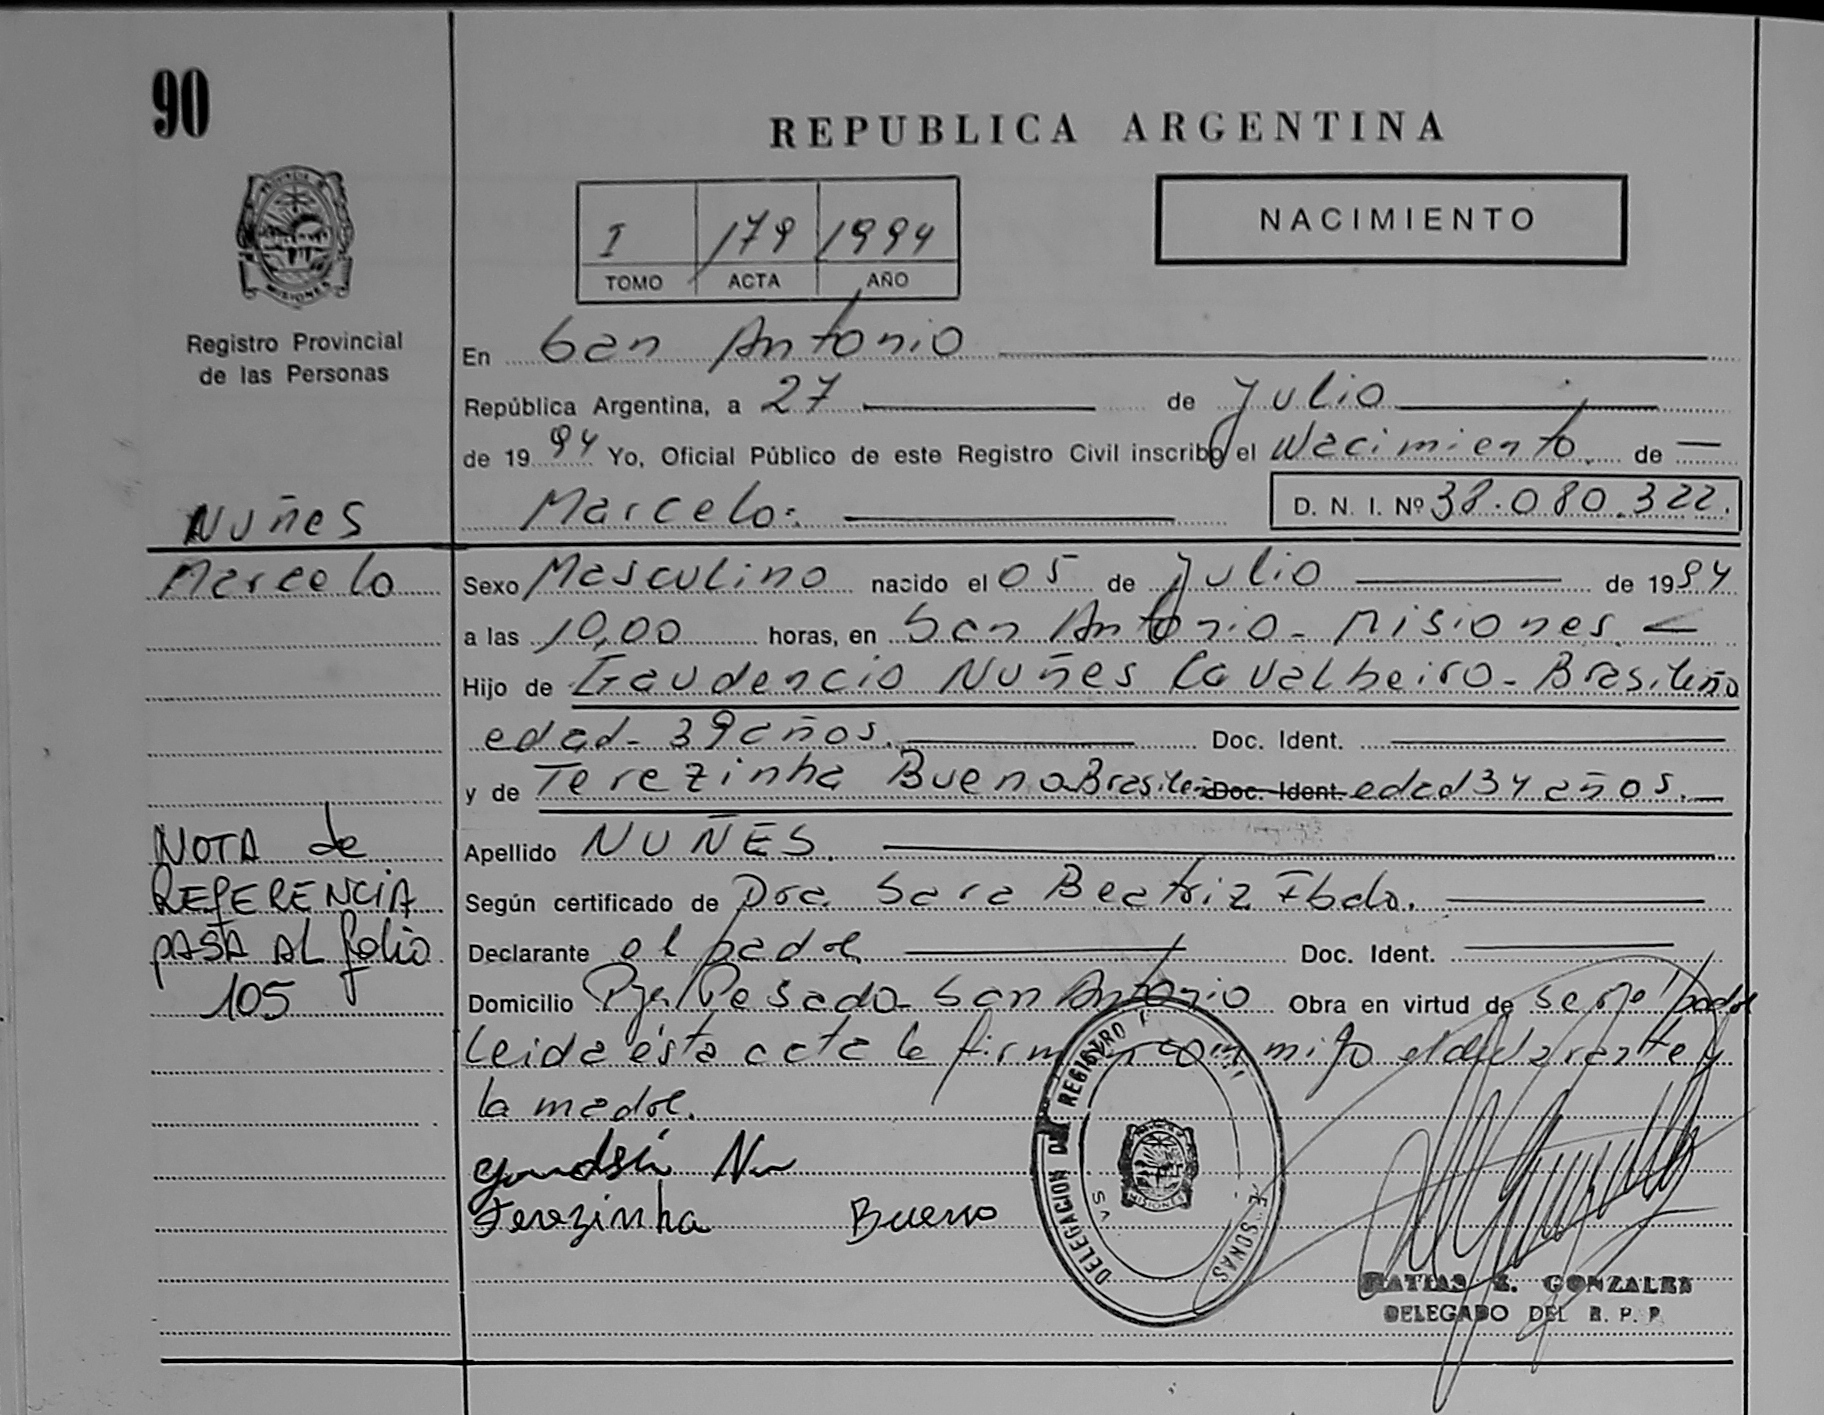 90
REPUBLICA ARGENTINA
NACIMIENTO
I 179 1994
TOMO ACTA AÑO
PROVINCIA DE
MISIONES
Registro Provincial
de las Personas
En San Antonio
República Argentina, a 27 de Julio
de 1994 Yo, Oficial Público de este Registro Civil inscribo el Nacimiento de
Marcelo: D. N. I. Nº 38.080.322.
Nuñes
Marcelo
Sexo Masculino nacido el 05 de Julio de 1994
a las 10,00 horas, en San Antonio - Misiones
Hijo de Gaudencio Nuñes Cavalheiro - Brasileño
edad - 39 años. Doc. Ident.
y de Terezinha Bueno Brasileña Doc. Ident. edad 34 años.
Apellido NUÑES.
Según certificado de Dra. Sara Beatriz
Declarante el padre Doc. Ident.
Domicilio Pje. Pesado - San Antonio Obra en virtud de ser el padre
Leida ésta acta la firman conmigo el declarante y
la madre.
NOTA de
REFERENCIA
PASA AL folio
105
Terezinha Bueno
DELEGACION DEL REGISTRO
MISIONES
MATIAS E. GONZALES
DELEGADO DEL R. P. P.